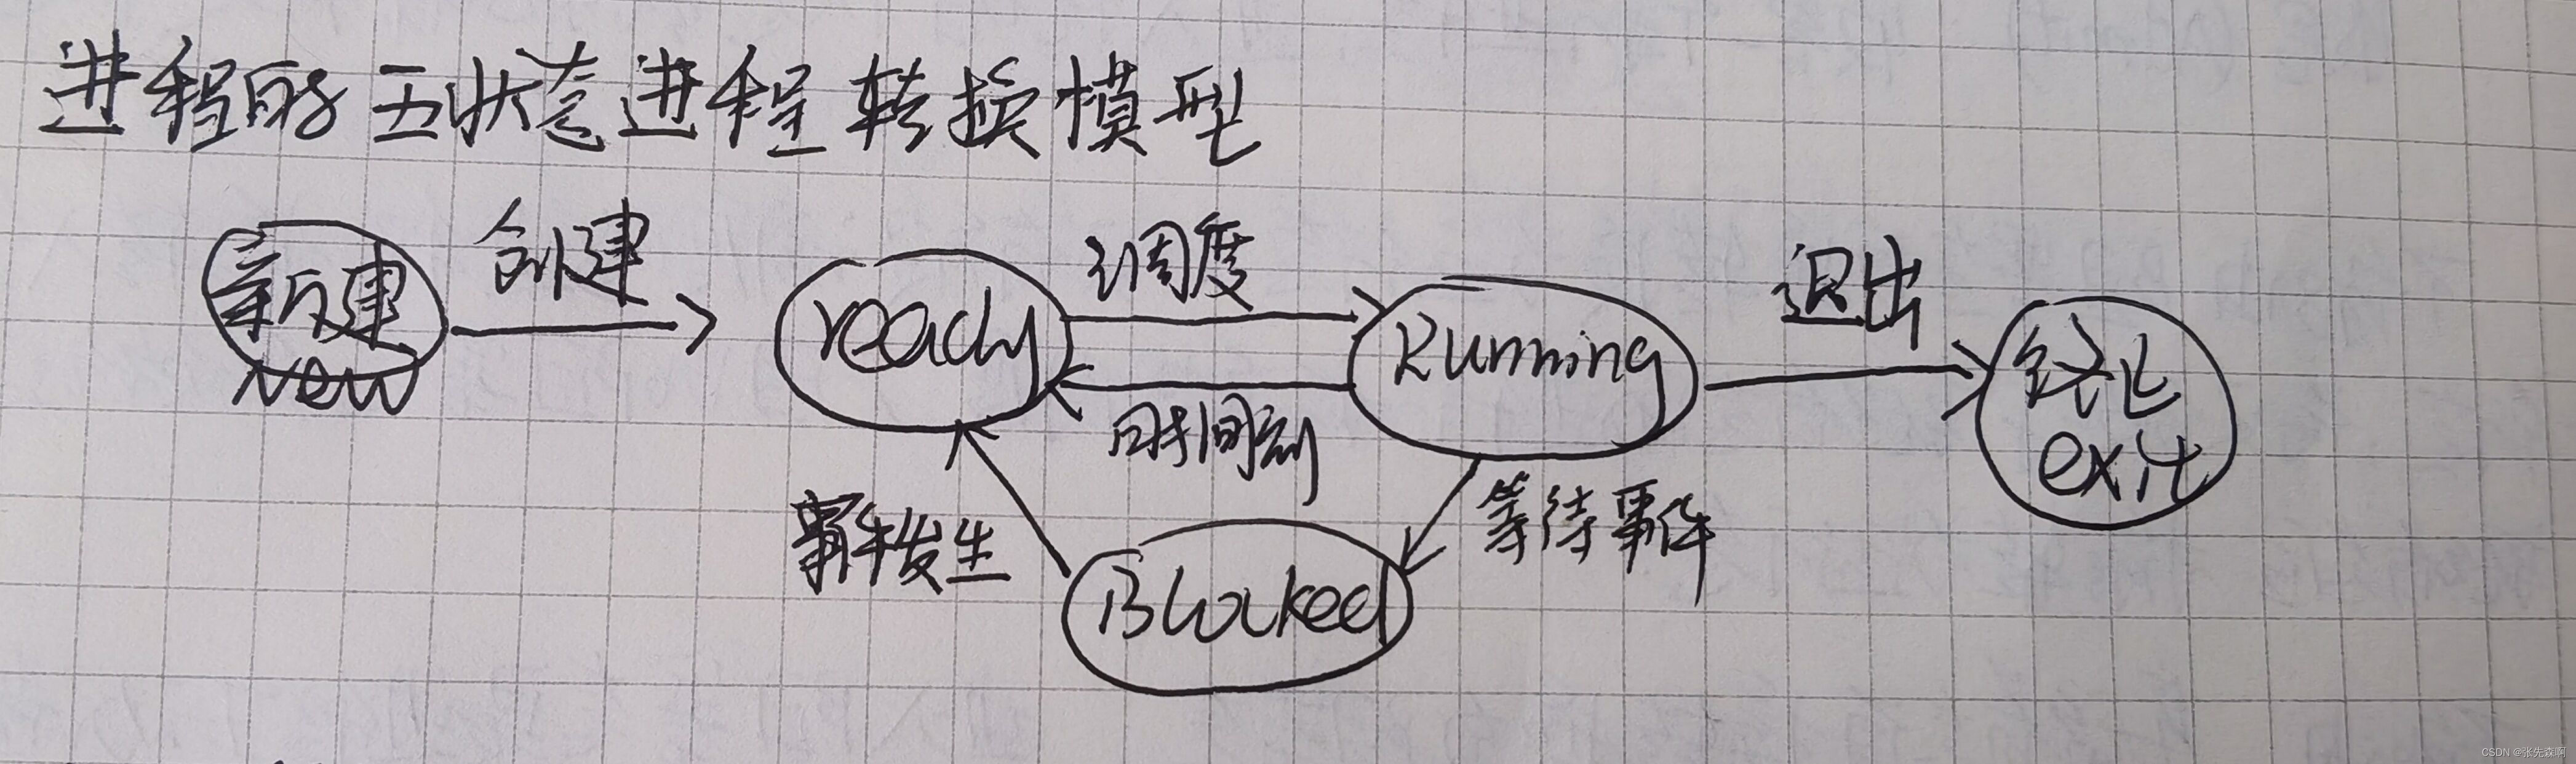 进程的五状态进程转换模型
新建
new
创建
ready
调度
时间刻
Running
退出
终止
exit
事件发生
等待事件
Blocked
CSDN @张先森啊